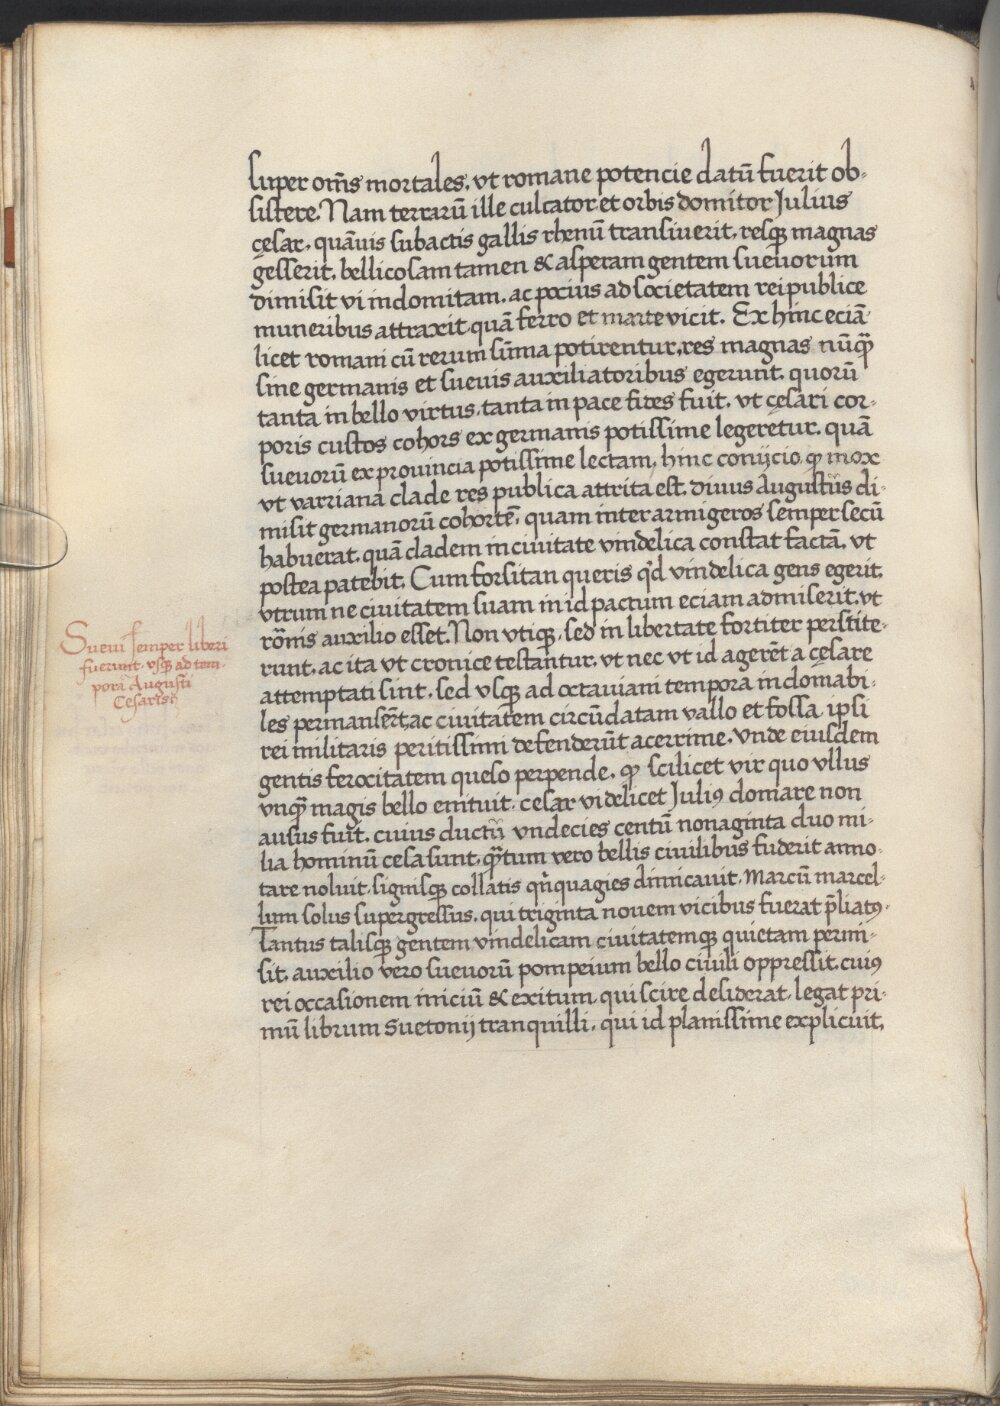 super om̄s mortales. vt romane potencie datū fuerit ob-
sistere. Nam terrarū ille culcator et orbis domitor Julius
cęsar, quāuis subactis gallis rhenū transiuerit, resqꝫ magnas
gesserit, bellicosam tamen & asperam gentem sueuorum
dimisit vi indomitam. ac pocius ad societatem reipublice
muneribus attraxit quā ferro et marte vicit. Ex hinc eciā
licet romani cū rerum sūma potirentur, res magnas nūqꝫ
sine germanis et sueuis auxiliatoribus egerunt. quorū
tanta in bello virtus, tanta in pace fides fuit, vt cęsari cor-
poris custos cohors ex germanis potissime legerētur. quā
sueuorū ex prouincia potissime lectam, hinc conijcio, ꝙ mox
vt varriana clade res publica attrita est. diuus Augustus di-
misit germanorū cohortē, quam inter armigeros semper secū
habuerat. quā cladem in ciuitate vindelica constat factā, vt
postea patebit. Cum forsitan queris qd vindelica gens egerit,
vtrum ne ciuitatem suam in id pactum eciam admiserit, vt
rōnis auxilio esset. Non vtiqꝫ, sed in libertate fortiter perstite-
runt, ac ita vt cronice testantur, vt nec vt id agerēt a cęsare
attemptati sint, sed vsqꝫ ad octauiani tempora indomabi-
les permansēt, ac ciuitatem circūdatam vallo et fossa ipsi
rei militaris peritissimi defenderūt acerrime. vnde eiusdem
gentis ferocitatem queso perpende, ꝙ scilicet vir quo vllus
vnqꝫ magis bello enituit, cesar videlicet Juliꝯ domare non
ausus fuit. cuius ductū vndecies centū nonaginta duo mi-
lia hominū cesa sunt, qꝫtum vero bellis ciuilibus fuderit anno-
tare noluit, signisqꝫ collatis qn̄quagies dimicauit. Marcū marcel-
lum solus supergressus, qui triginta nouem vicibus fuerat p̄liatꝯ.
Tantus talisqꝫ gentem vindelicam ciuitatemqꝫ quietam permi-
sit. auxilio vero sueuorū pompeium bello ciuili oppressit. cuiꝯ
rei occasionem iniciū & exitum, qui scire desiderat, legat pri-
mū librum Suetonij tranquilli, qui id planissime explicuit,
Sueui semper liberi
fuerunt vsqꝫ ad tem-
pora Augusti
Cesaris